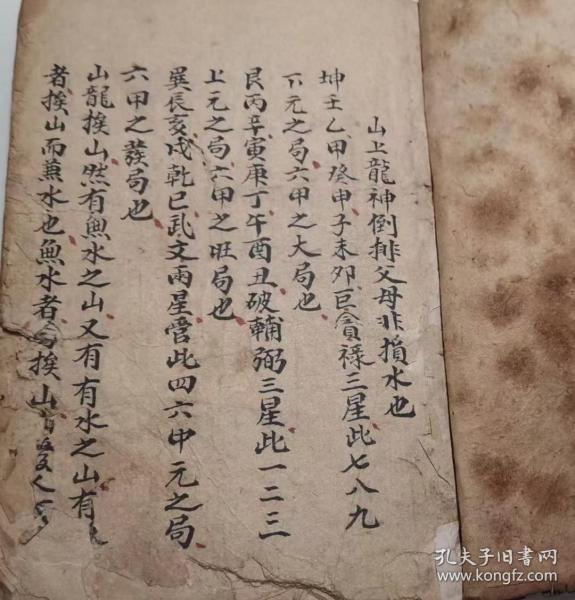 山上龍神倒排父母非損水也
坤壬乙甲癸申子未卯巨貪祿三星此七八九
下元之局六甲之大局也
艮丙辛寅庚丁午酉丑破輔弼三星此一二三
上元之局六甲之旺局也
巽辰亥戌乾巳武文兩星管此四六中元之局
六甲之發局也
山龍挨山然有無水之山又有有水之山有
者挨山而兼水也無水者挨山
孔夫子旧书网
www.kongfz.com